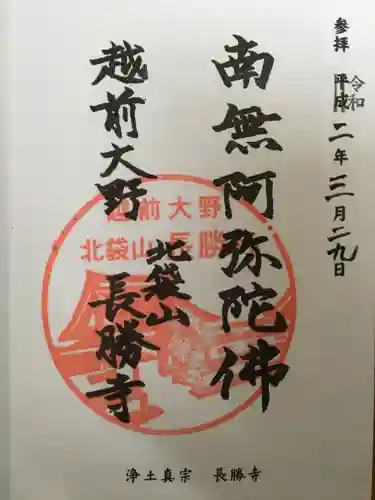 参拝 平成 二年三月二九日
令和
南無阿弥陀佛
北袋山
越前大野 長勝寺
越前大野
北袋山 長勝
浄土真宗 長勝寺